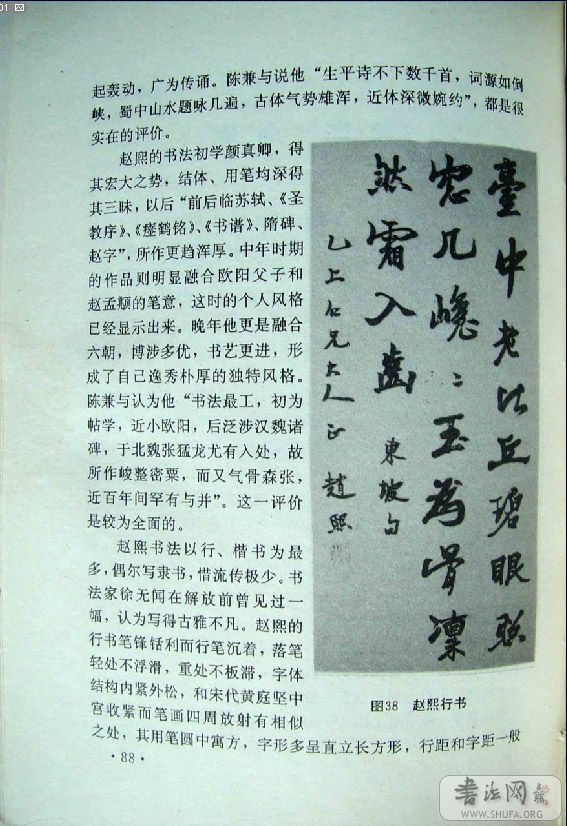 01
起轰动，广为传诵。陈兼与说他“生平诗不下数千首，词源如倒
峡，蜀中山水题咏几遍，古体气势雄浑，近体深微婉约”，都是很
实在的评价。
赵熙的书法初学颜真卿，得
其宏大之势，结体、用笔均深得
其三昧，以后“前后临苏轼、《圣
教序》、《瘗鹤铭》、《书谱》、隋碑、
赵字”，所作更趋浑厚。中年时期
的作品则明显融合欧阳父子和
赵孟頫的笔意，这时的个人风格
已经显示出来。晚年他更是融合
六朝，博涉多优，书艺更进，形
成了自己逸秀朴厚的独特风格。
陈兼与认为他“书法最工，初为
帖学，近小欧阳，后泛涉汉魏诸
碑，于北魏张猛龙尤有入处，故
所作峻整密粟，而又气骨森张，
近百年间罕有与并”。这一评价
是较为全面的。
赵熙书法以行、楷书为最
多，偶尔写隶书，惜流传极少。书
法家徐无闻在解放前曾见过一
幅，认为写得古雅不凡。赵熙的
行书笔锋铦利而行笔沉着，落笔
轻处不浮滑，重处不板滞，字体
结构内紧外松，和宋代黄庭坚中
宫收紧而笔画四周放射有相似
之处，其用笔圆中寓方，字形多呈直立长方形，行距和字距一般
臺中老比丘碧眼照
窗几巉〻玉為骨凜
然霜入齒 東坡句
乙上仁兄大人正 趙熙
图38 赵熙行书
·88·
书法网
WWW.SHUFA.ORG